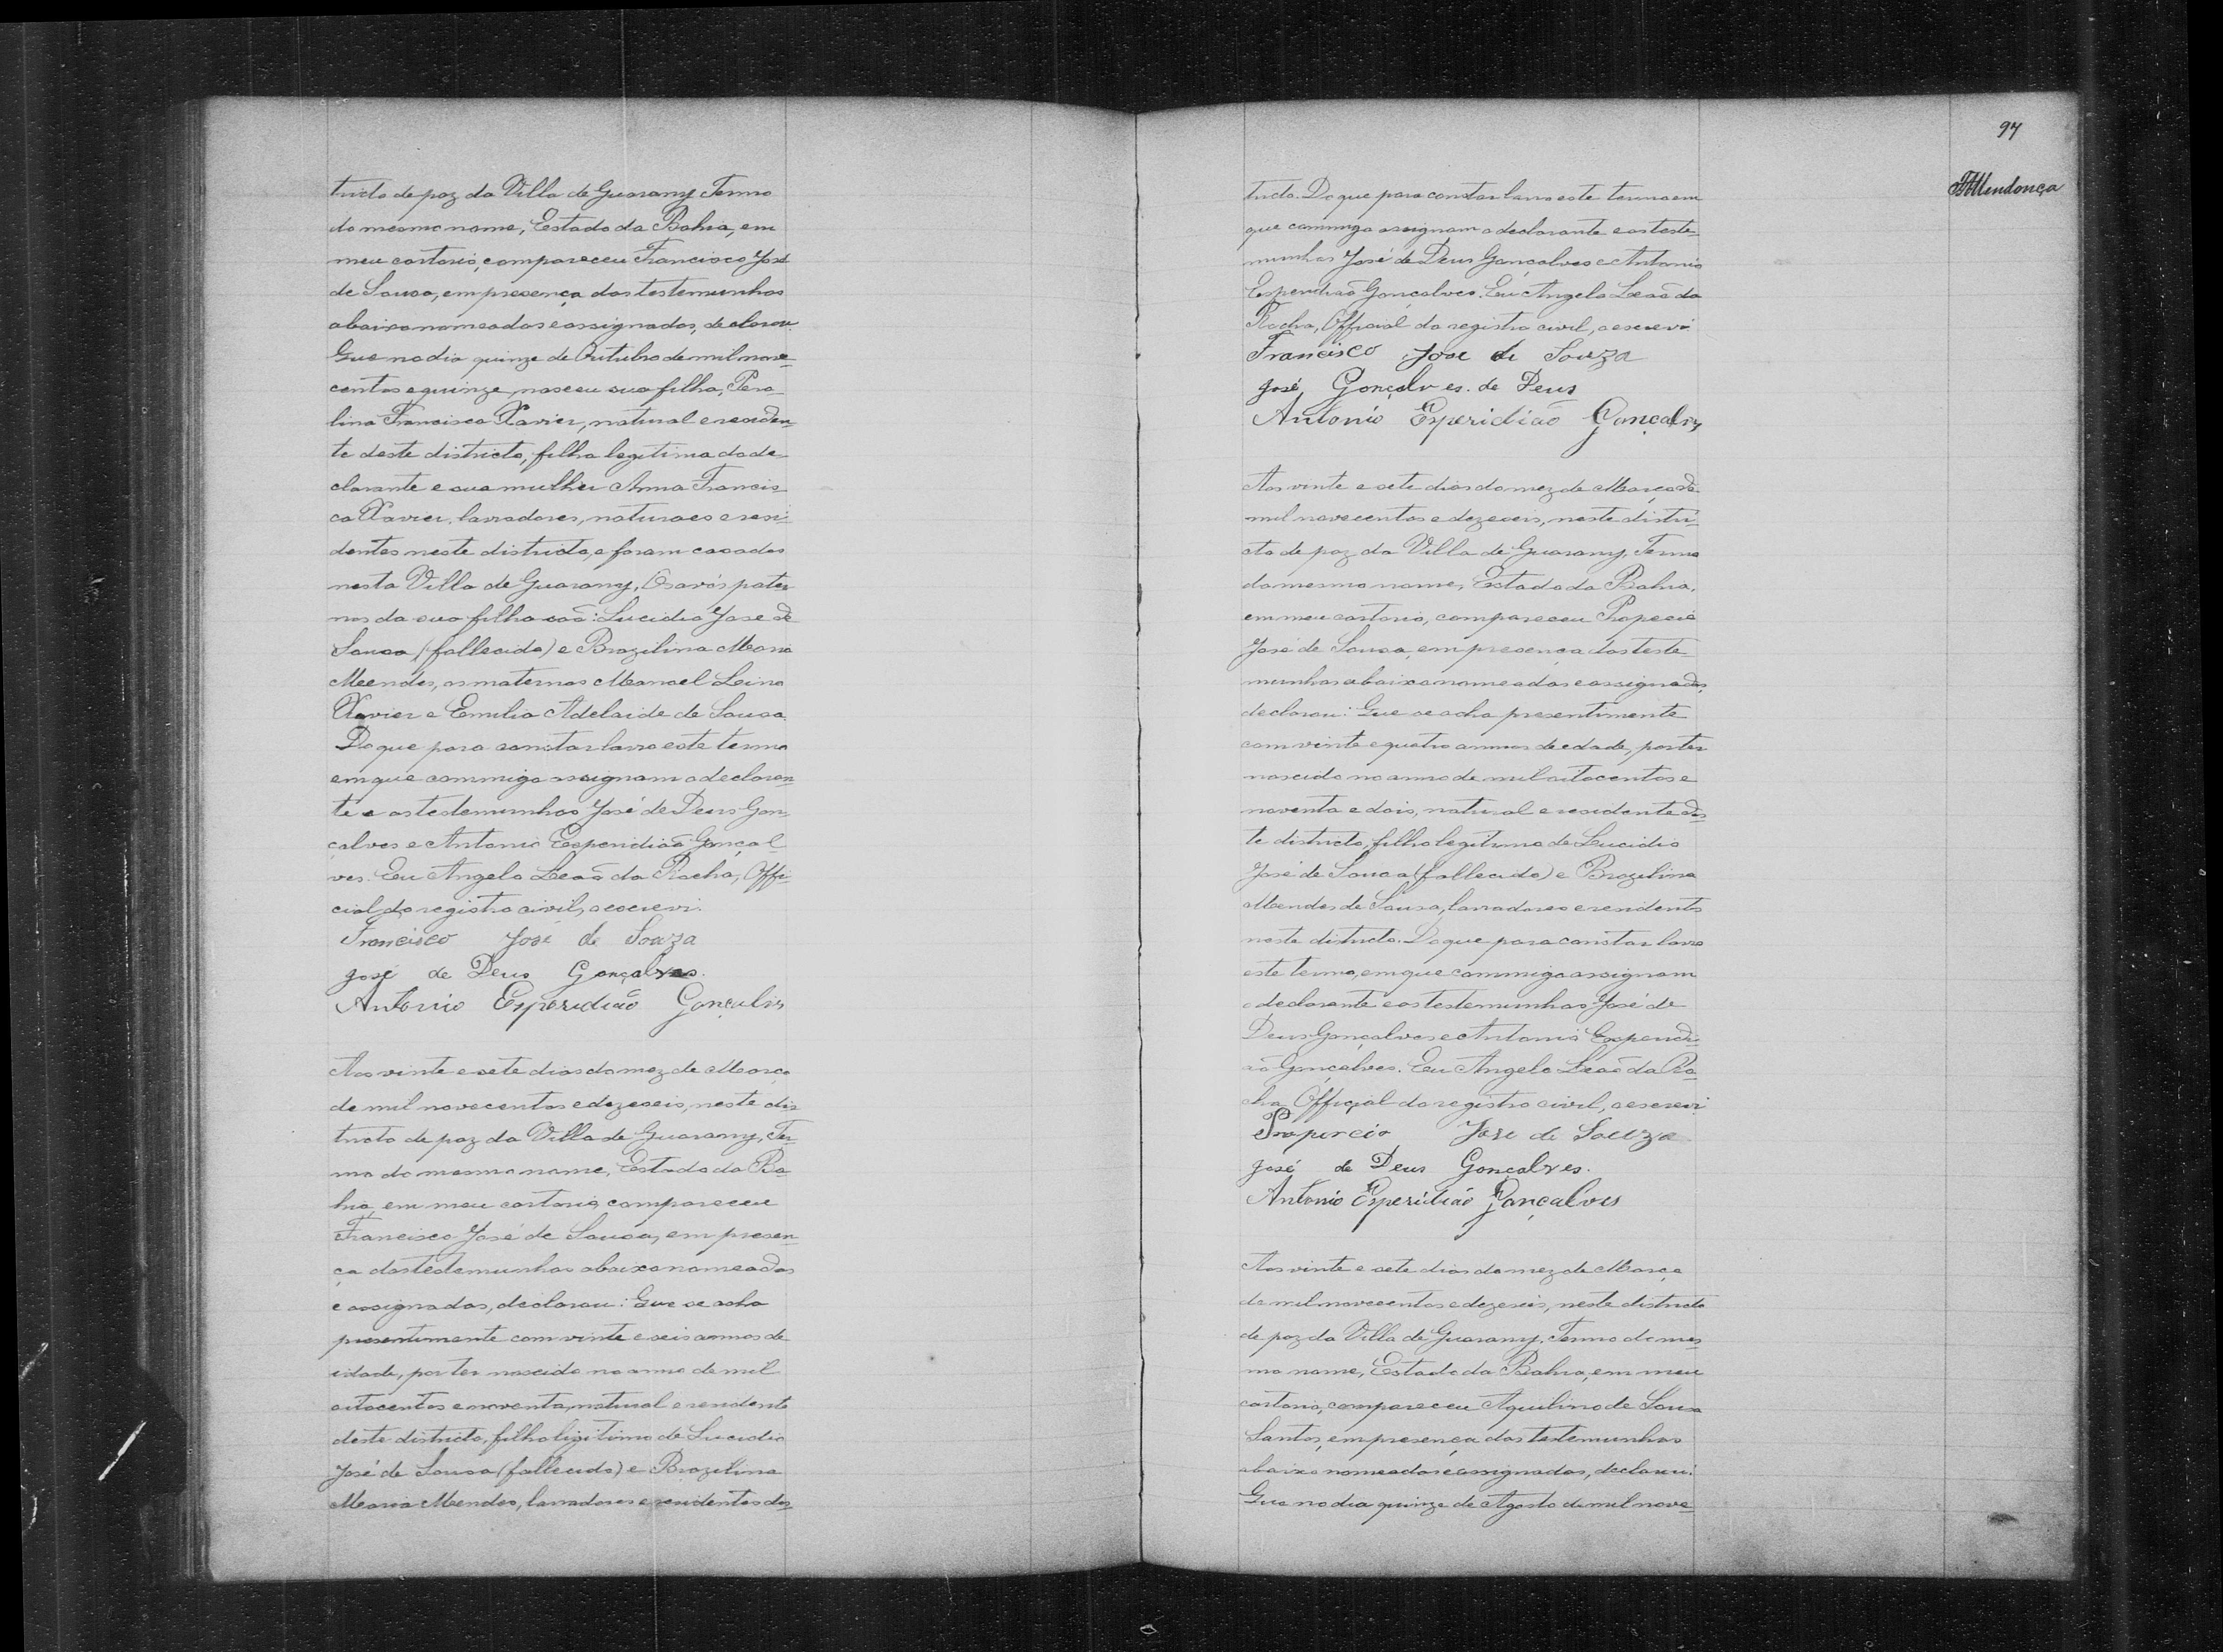 tricto de paz da Villa de Guarany Termo
do mesmo nome, Estado da Bahia, em
meu cartorio, compareceu Francisco José
de Sousa, em presença das testemunhas
abaixo nomeadas e assignadas, declarou:
Que no dia quinze de Outubro de mil nove-
centos e quinze, nasceu sua filha, Pero-
lina Francisca Xavier, natural e residen-
te deste districto, filha legitima do de-
clarante e sua mulher Anna Francis-
ca Xavier, lavradores, naturaes e resi-
dentes neste districto, e foram casados
nesta Villa de Guarany. Os avós pater-
nos da sua filha saõ: Lucidio José de
Sousa (fallecido) e Brazilina Maria
Mendes, os maternos Manoel Leino
Xavier e Emilia Adelaide de Sousa.
Do que para constar lavro este termo
em que commigo assignam o declaran-
te e as testemunhas José de Deus Gon-
çalves e Antonio Esperidiaõ Gonçal-
ves. Eu Angelo Leaõ da Rocha, Offi-
cial do registro civil, o escrevi.
Francisco José de Souza
José de Deus Gonçalves.
Antonio Esperidiaõ Gonçalvis
Aos vinte e sete dias do mez de Março
de mil novecentos e dezeseis, neste dis-
tricto de paz da Villa de Guarany, Ter-
mo do mesmo nome, Estado da Ba-
hia, em meu cartorio, compareceu
Francisco José de Sousa, em presen-
ça das testemunhas abaixo nomeadas
e assignadas, declarou: Que se acha
presentimente com vinte e seis annos de
idade, por ter nascido no anno de mil
oitocentos e noventa, natural e residente
deste districto, filho legitimo de Lucidio
José de Sousa (fallecido) e Brazilina
Maria Mendes, lavradores e residentes des-
97
Mendonça
tricto. Do que para constar lavro este termo em
que commigo assignam o declarante e as teste-
munhas José de Deus Gonçalves e Antonio
Esperidiaõ Gonçalves. Eu Angelo Leaõ da
Rocha, Official do registro civil, o escrevi
Francisco Jose de Souza
José Gonçalves. de Deus
Antonio Esperidiaõ Gonçalvis
Aos vinte e sete dias do mez de Março de
mil novecentos e dezeseis, neste distri-
cto de paz da Villa de Guarany, Termo
do mesmo nome, Estado da Bahia,
em meu cartorio, compareceu Propecio
José de Sousa, em presença das teste-
munhas abaixo nomeadas e assignadas,
declarou: Que se acha presentimente
com vinte e quatro annos de edade, por ter
nascido no anno de mil oitocentos e
noventa e dois, natural e residente des-
te districto, filho legitimo de Lucidio
José de Sousa (fallecido) e Brazilina
Mendes de Sousa, lavradores e residents
neste districto. Do que para constar lavro
este termo, em que commigo assignam
o declarante e as testemunhas José de
Deus Gonçalves e Antonio Esperidi-
aõ Gonçalves. Eu Angelo Leaõ da Ro-
cha, Official do registro civil, o escrevi
Propercio José de Souza
José de Deus Gonçalves.
Antonio Esperidiaõ Gonçalves
Aos vinte e sete dias do mez de Março
de mil novecentos e dezeseis, neste districto
de paz da Villa de Guarany, Termo do mes-
mo nome, Estado da Bahia, em meu
cartorio, compareceu Aquilino de Sousa
Santos, em presença das testemunhas
abaixo nomeadas e assignadas, declarou:
Que no dia quinze de Agosto de mil nove-